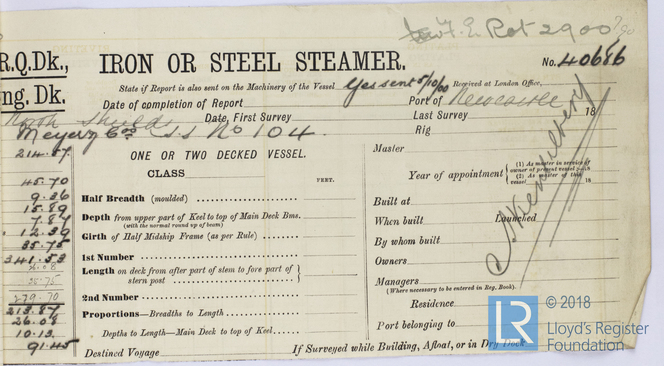 Rpt 2900
R.Q.Dk., IRON OR STEEL STEAMER. No. 40686
State if Report is also sent on the Machinery of the Vessel Yes sent 5/10/00 Received at London Office,
ng. Dk. Date of completion of Report Port of Newcastle
North Shields Date, First Survey Last Survey 18
Meyer's SS No 104. Rig
214.57 ONE OR TWO DECKED VESSEL. Master
CLASS FEET. Year of appointment (1) As master in service of owner of present vessel 18 (2) As master of this vessel 18
45.70
9.36 Half Breadth (moulded) Built at
15.89
7.87 Depth from upper part of Keel to top of Main Deck Bms. When built Launched
(with the normal round up of beam)
12.39 Girth of Half Midship Frame (as per Rule) By whom built
35.75
341.53 1st Number Owners
26.08 Length on deck from after part of stem to fore part of stern post
35.75 Managers
(Where necessary to be entered in Reg. Book).
279.70 2nd Number
213.87 Proportions—Breadths to Length Residence
26.08
10.13 Depths to Length—Main Deck to top of Keel Port belonging to
91.45 Destined Voyage If Surveyed while Building, Afloat, or in Dry Dock
LR © 2018
Lloyd's Register
Foundation